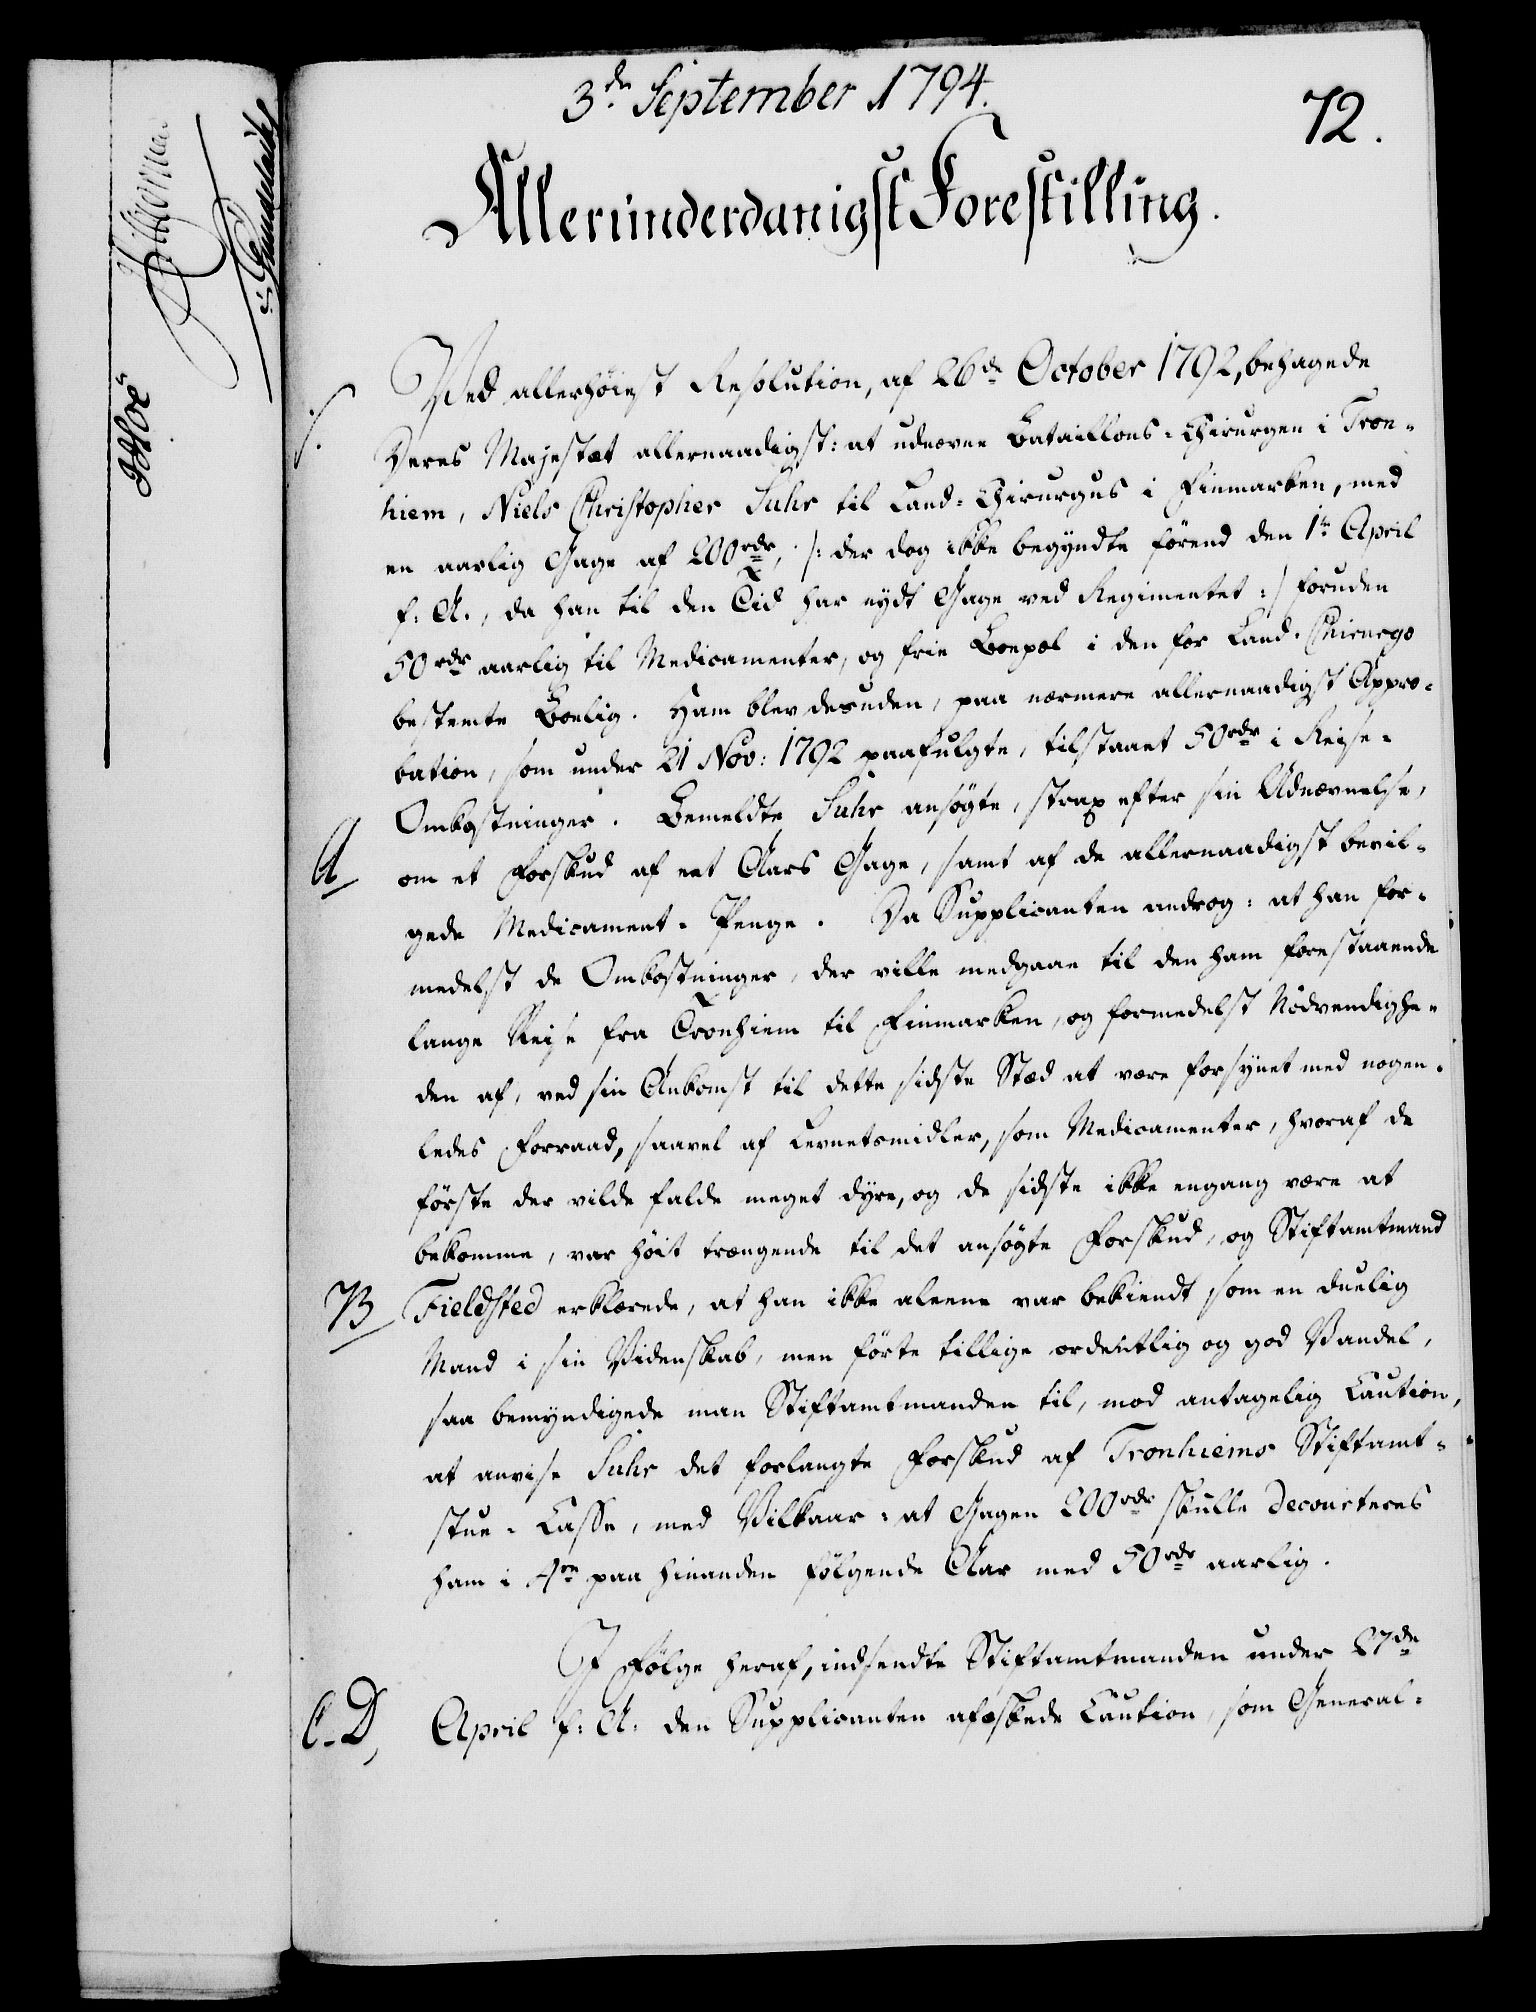 3de September 1794.
72.
Allerunderdanigst Forestilling.
Ved allerhöiest Resolution, af 26de October 1792, behagede
Deres Majestæt allernaadigst: at udnævne Bataillons-Chirurgen i Tron-
hiem, Niels Christopher Suhr til Land-Chirurgus i Finmarken, med
en aarlig Gage af 200rdr, /: der dog ikke begyndte förend den 1te April
f: A., da han til den Tid har nydt Gage ved Regimentet :/ foruden
50rdr aarlig til Medicamenter, og frie Boepæl i den for Land-Chirurgo
bestemte Boelig. Ham blev desuden, paa nærmere allernaadigst Appro-
bation, som under 21 Nov: 1792 paafulgte, tilstaaet 50rdr i Reise-
Omkostninger. Bemeldte Suhr ansögte, strax efter sin Udnævnelse,
A
om et Forskud af eet Aars Gage, samt af de allernaadigst bevil-
gede Medicament-Penge. Da Supplicanten androg: at han for-
medelst de Omkostninger, der ville medgaae til den ham forestaaende
lange Reise fra Tronhiem til Finmarken, og formedelst Nödvendighe-
den af, ved sin Ankomst til dette sidste Stæd at være forsynet med nogen-
ledes Forraad, saavel af Levnetsmidler, som Medicamenter, hvoraf de
förste der vilde falde meget dyre, og de sidste ikke engang være at
bekomme, var höit trængende til det ansögte Forskud, og Stiftamtmand
B
Fieldsted erklærede, at han ikke aleene var bekiendt som en duelig
Mand i sin Videnskab, men förte tillige ordentlig og god Vandel,
saa bemyndigede man Stiftamtmanden til, mod antagelig Caution,
at anvise Suhr det forlangte Forskud af Tronhiems Stiftamt-
stue-Casse, med Vilkaar: at Gagen 200rdr skulle decourteres
ham i 4re paa hinanden fölgende Aar med 50rdr aarlig.
I Fölge heraf, indsendte Stiftamtmanden under 27de
C. D,
April f: A: den Supplicanten afæskede Caution, som General-